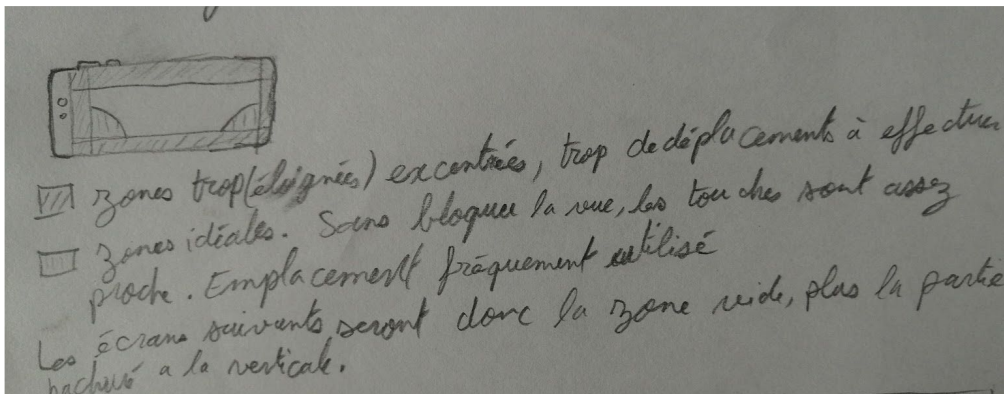 zones trop (éloignées) excentrées, trop de déplacements à effectuer
zones idéales. Sans bloquer la vue, les touches sont assez
proche. Emplacement fréquement utilisé
Les écrans suivants seront donc la zone vide, plus la partie
hachuré a la verticale.